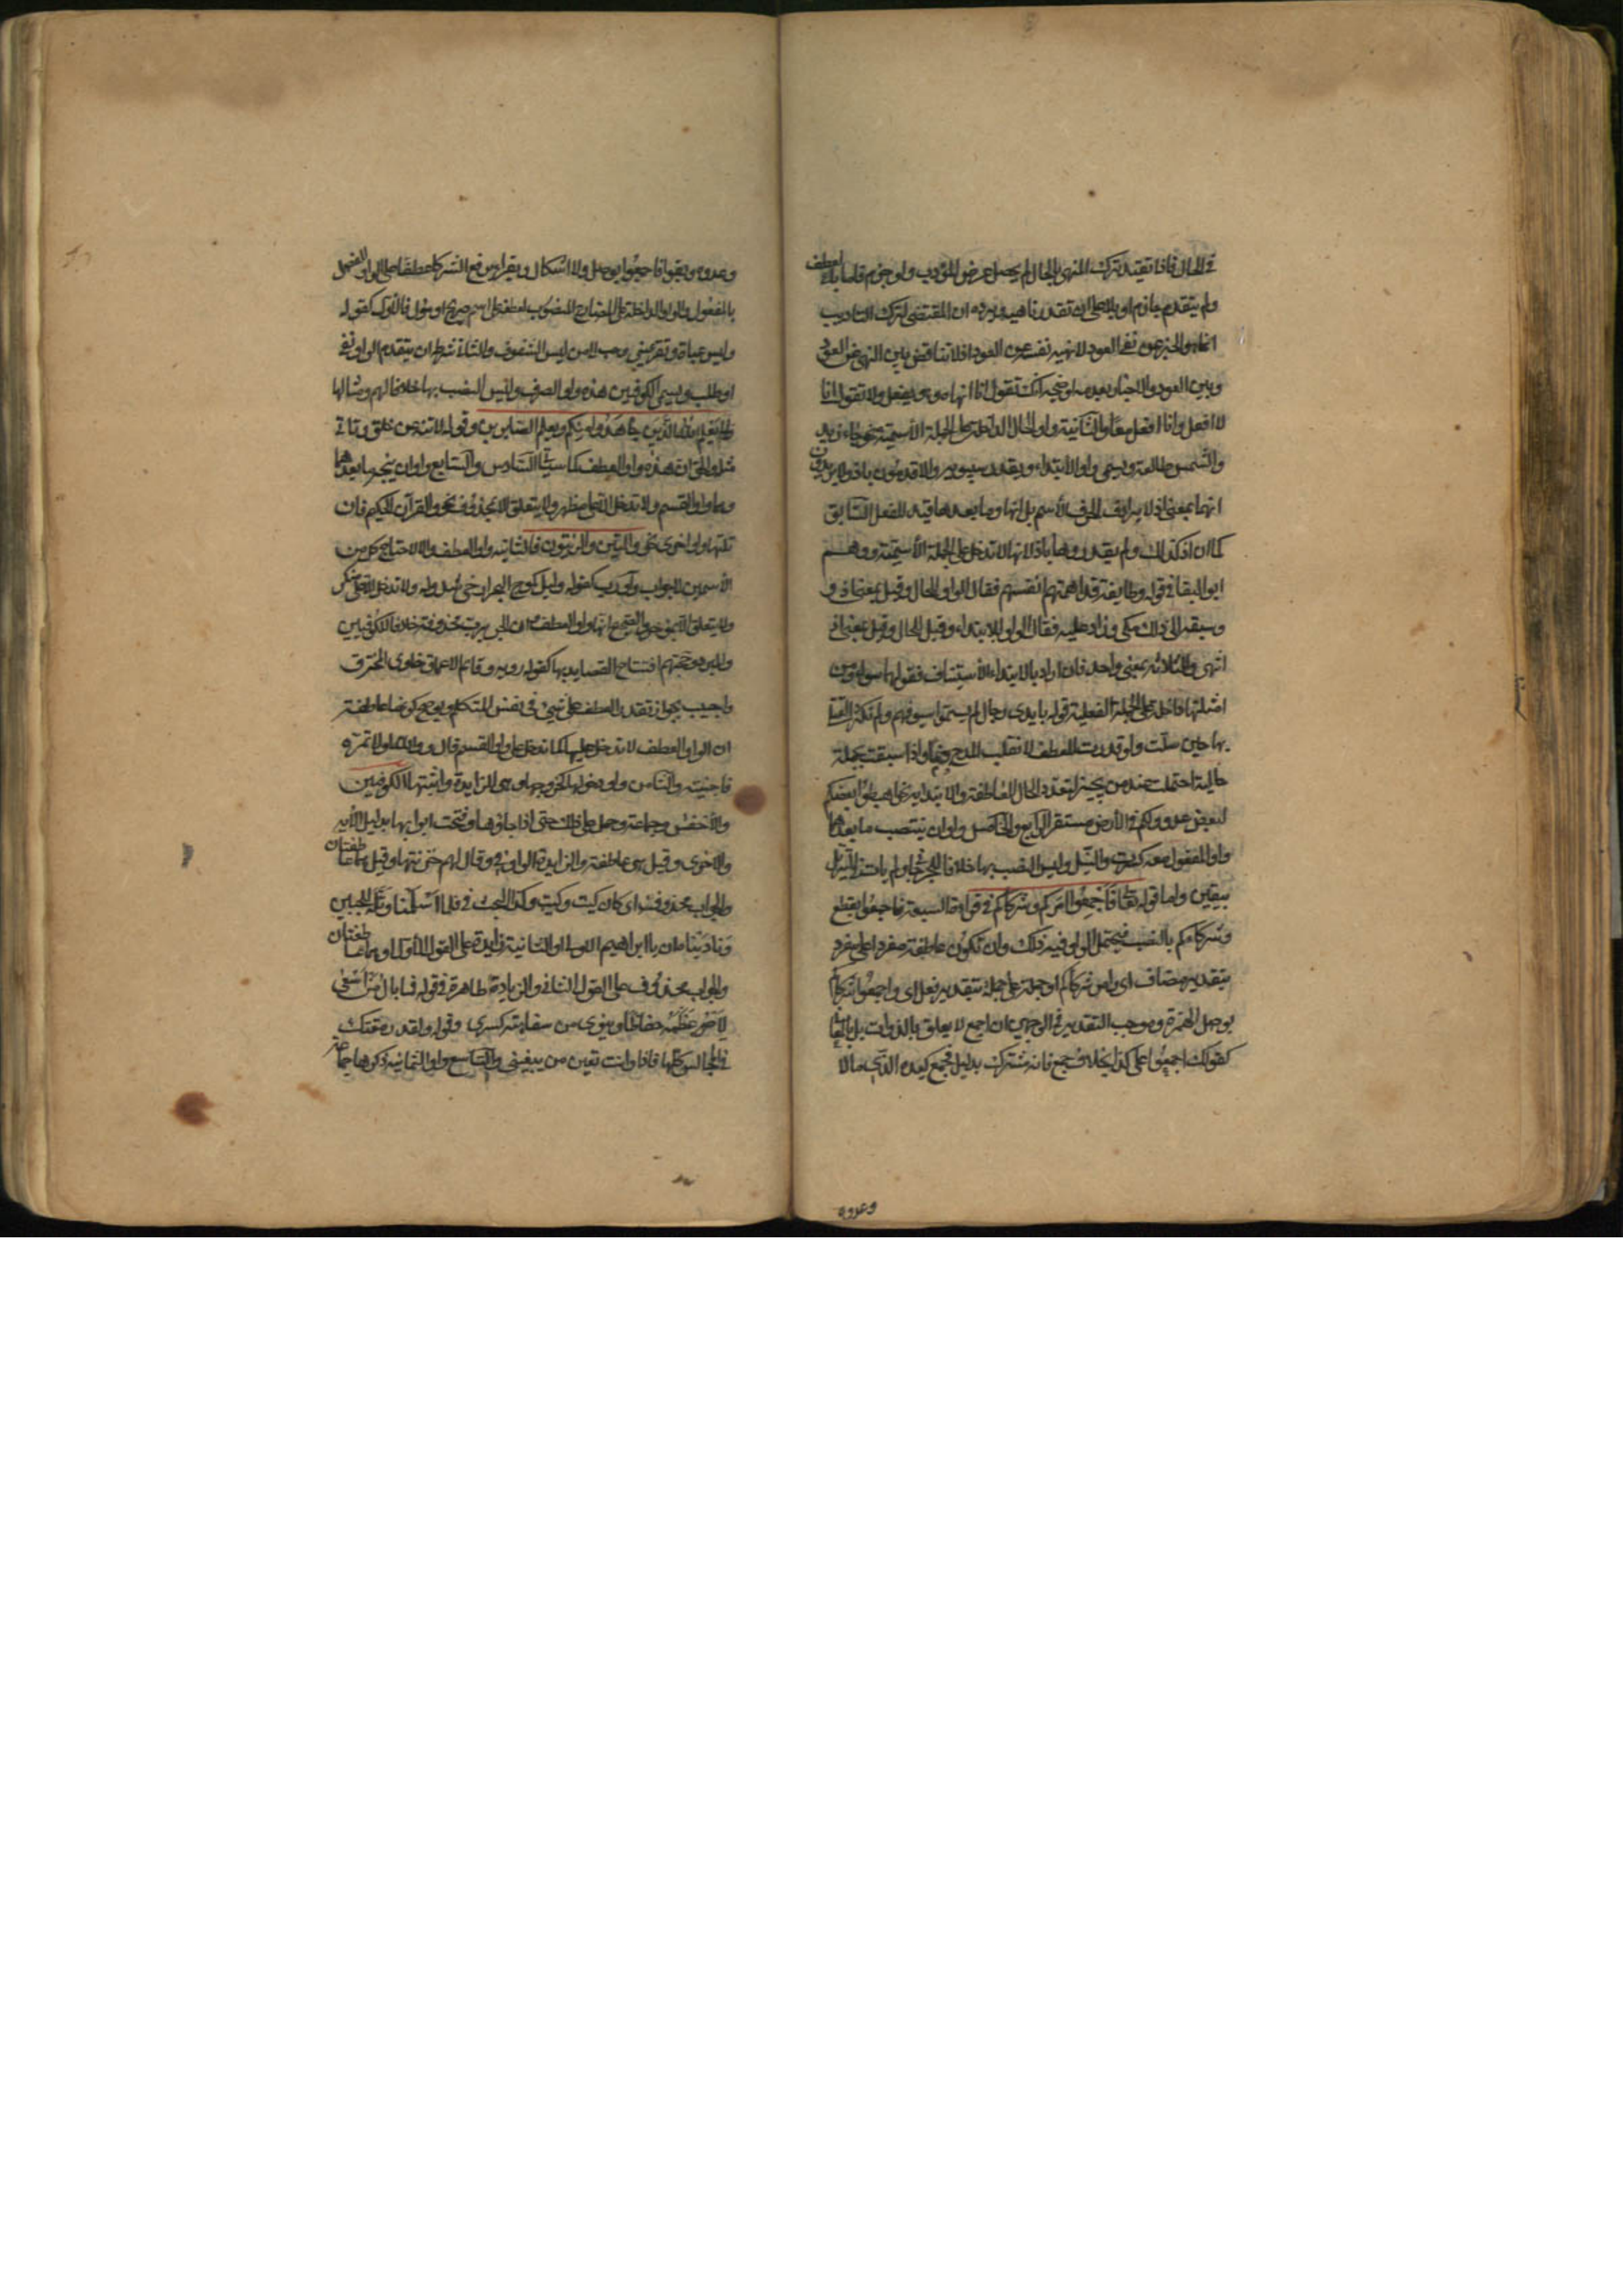 في الحال فاذا تقيد ترك المنهي بالحال لم يحصل غرض المؤدب ولو جزم فاما بالعطف
ولم يتقدم جازم او بلا على ان تقدر ناهية ويرده ان المقتضي لترك التاديب
انما هو الخبر عن نفي العود لا نهيه نفسه عن العود اذ لا تناقض بين النهي عن العود
وبين العود والاخبار بعدمه اوضحه انك تقول انا انهاه وهو يفعل ولا تقول انا
لا افعل وانا افعل معا والثانية واو الحال الداخلة على الجملة الاسمية نحو جاء زيد
والشمس طالعة وتسمى واو الابتداء ويقدرها سيبويه والاقدمون باذ ولا يريدون
انها بمعنى اذ لا يرادف الحرف الاسم بل انها وما بعدها قيد للفعل السابق
كما ان اذ كذلك ولم يقدروها باذا لانها لا تدخل على الجملة الاسمية ووهم
ابو البقا في قوله وطايفة قد اهمتهم انفسهم فقال الواو للحال وقيل بمعنى اذ و
وسبقه الى ذلك مكي وزاد عليه فقال الواو للابتداء وقيل للحال وقيل بمعنى اذ
انتهى والثلاثة بمعنى واحد فان اراد بالابتداء الاستيناف فقولهما سواء ومن
امثلتها داخلة على الجملة الفعلية قوله بايدي رجال لم يشيموا سيوفهم ولم تكثر القتلى
بها حين سلت ولو قدرت للعطف لانقلب المدح ذما واذا سبقت بجملة
حالية احتملت عند من يجيز تعدد الحال العاطفة والابتدائية نحو اهبطوا بعضكم
لبعض عدو ولكم في الارض مستقر الرابع والخامس واوان ينتصب ما بعدهما
واو المفعول معه كسرت والنيل وليس النصب بها خلافا للجرجاني ولم يات في التنزيل
بيقين واما قوله تعالى فاجمعوا امركم وشركاءكم في قراءة السبعة فاجمعوا بقطع
وشركاءكم بالنصب فتحتمل الواو فيه ذلك وان تكون عاطفة مفردا على مفرد
بتقدير مضاف اي وامر شركائكم او جملة على جملة بتقدير فعل اي واجمعوا شركاءكم
بوصل الهمزة وموجب التقدير في الوجهين ان اجمع لا يعلق بالذوات بل بالمعاني
كقولك اجمعوا على كذا بخلاف جمع فانه مشترك بدليل فجمع كيده الذي جمع مالا
وعدده
وعدده ويقرا فاجمعوا بوصل ولا اشكال ويقرا برفع الشركاء عطفا على الواو للفصل
بالمفعول والواو الداخلة على المضارع المنصوب لعطفه على اسم صريح او مؤل فالاول كقوله
ولبس عباءة وتقر عيني احب الي من لبس الشفوف والثاني شرطه ان يتقدم الواو نفي
او طلب ويسمي الكوفيون هذه واو الصرف وليس النصب بها خلافا لهم ومثالها
ولما يعلم الله الذين جاهدوا منكم ويعلم الصابرين وقوله لا تنه عن خلق وتاتي
مثله والحق ان هذه واو العطف كما سياتي السادس والسابع واوان ينجر ما بعدهما
وهما واو القسم ولا تدخل الا على مظهر ولا يتعلق الا بمحذوف نحو والقرآن الحكيم فان
تلتها واو اخرى نحو والتين والزيتون فالثانية واو العطف والا لاحتاج كل من
الاسمين لجواب وواو رب كقوله وليل كموج البحر ارخى سدوله ولا تدخل الا على منكر
ولا يتعلق الا بمؤخر والصحيح انها واو العطف وان الجر برب محذوفة خلافا للكوفيين
والمبرد وحجتهم افتتاح القصايد بها كقوله روبه وقاتم الاعماق خاوى المخترق
واجيب بجواز تقدير العطف على شيء في نفس المتكلم ويوضح كونها عاطفة
ان الواو العطف لا تدخل عليها كما تدخل على واو القسم قال ووالله لولا تمره
ما حببته والثامن واو دخولها كخروجها وهي الزايدة واثبتها الكوفيون
والاخفش وجماعة وحمل على ذلك حتى اذا جاؤها وفتحت ابوابها بدليل الآية
والاخرى وقيل هي عاطفة والزايدة الواو في وقال لهم خزنتها وقيل هما عاطفتان
والجواب محذوف اي كان كيت وكيت وكذا البحث في فلما اسلما وتله للجبين
وناديناه ان يا ابراهيم الاولى او الثانية زايدة على القول الاول او هما عاطفتان
والجواب محذوف على القول الثاني والزيادة ظاهرة في قوله فما بال من اسعى
لاجبر عظمه حفاظا وينوي من سفاهته كسري وقوله ولقد رمقتك
في المجالس كلها فاذا وانت تعين من يبغيني والتاسع واو الثمانية ذكرها جماعة